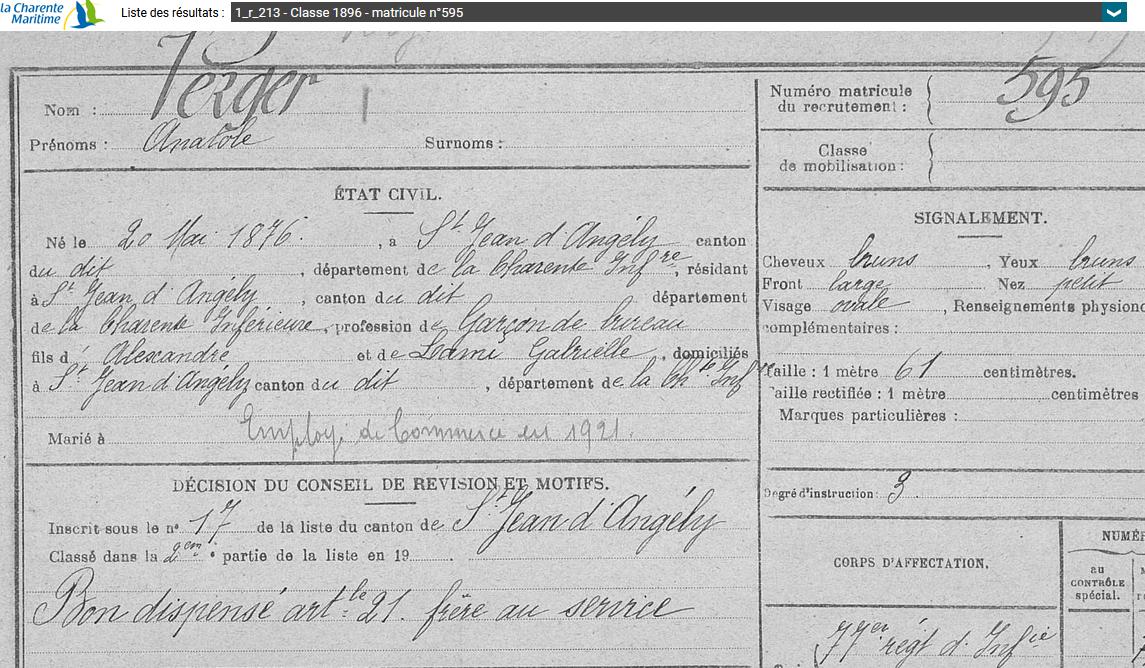 la Charente
Maritime
Liste des résultats : 1_r_213 - Classe 1896 - matricule n°595
Nom : Verger
Prénoms : Anatole Surnoms :
ÉTAT CIVIL.
Né le 20 Mai 1876. , à St Jean d'Angély canton
du dit , département de la Charente Infre, résidant
à St Jean d'Angély , canton du dit département
de la Charente Inférieure, profession de Garçon de bureau
fils d' Alexandre et de Lami Gabrielle , domiciliés
à St Jean d'Angély canton du dit , département de la Chte Infre
Marié à
Employé de Commerce en 1921.
DÉCISION DU CONSEIL DE REVISION ET MOTIFS.
Inscrit sous le n° 17 de la liste du canton de St Jean d'Angély
Classé dans la 2em e partie de la liste en 19
Bon dispensé artle 21. frère au service
Numéro matricule
du recrutement : 595
Classe
de mobilisation :
SIGNALEMENT.
Cheveux bruns , Yeux bruns
Front large Nez petit
Visage ovale , Renseignements physiono
complémentaires :
Taille : 1 mètre 61 centimètres.
Taille rectifiée : 1 mètre centimètres
Marques particulières :
Degré d'instruction : 3
CORPS D'AFFECTATION.
NUMÉR
au
CONTRÔLE
spécial.
régt d' Infie